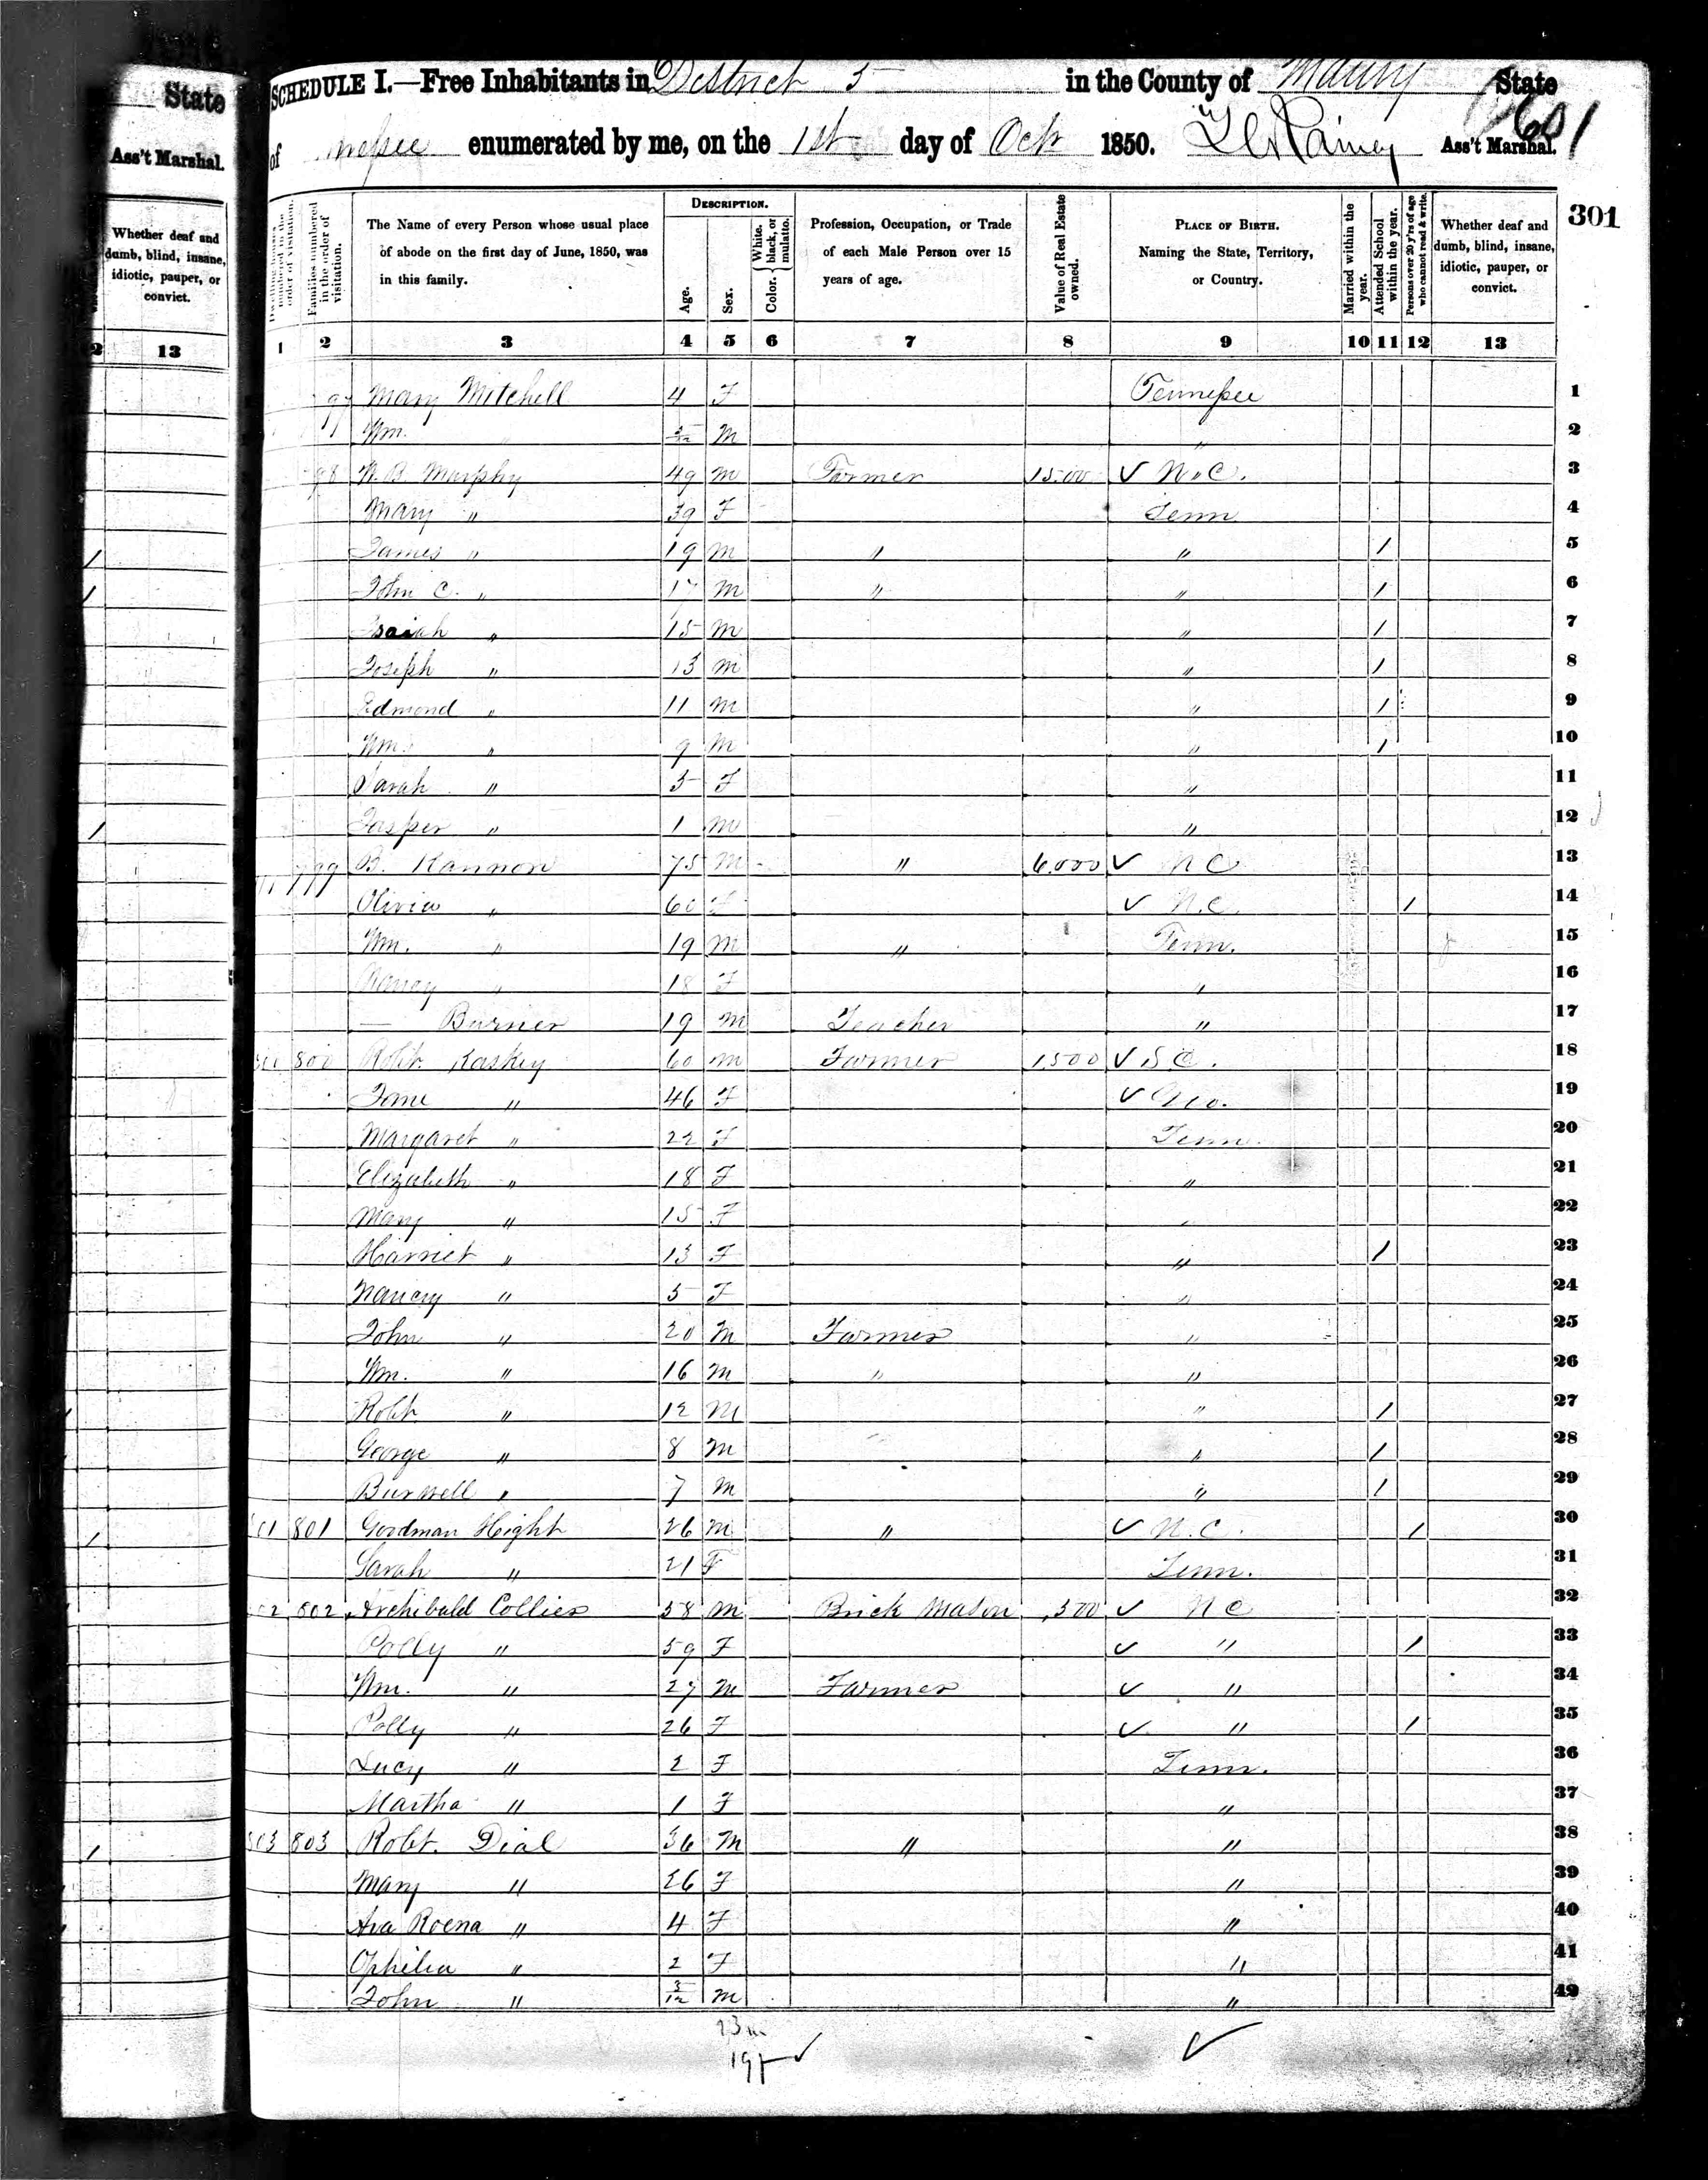 State
Ass't Marshal.
Whether deaf and
dumb, blind, insane,
idiotic, pauper, or
convict.
13
SCHEDULE I.—Free Inhabitants in District 5 in the County of Maury State
of enumerated by me, on the 1st day of Oct 1850. Rainey Ass't Marshal.
601
301
Families numbered in the order of visitation.
The Name of every Person whose usual place
of abode on the first day of June, 1850, was
in this family.
DESCRIPTION.
Age.
Sex.
Color. { White, black, or mulatto.
Profession, Occupation, or Trade
of each Male Person over 15
years of age.
Value of Real Estate owned.
PLACE OF BIRTH.
Naming the State, Territory,
or Country.
Married within the year.
Attended School within the year.
Persons over 20 y'rs of age who cannot read & write.
Whether deaf and
dumb, blind, insane,
idiotic, pauper, or
convict.
1 2 3 4 5 6 7 8 9 10 11 12 13
Mary Mitchell 4 F Tennessee 1
Wm. " M " 2
98 Murphy 49 M Farmer 1500 ✓ N.C. 3
Mary " 39 F Tenn 4
James " 19 M " " / 5
John C. " 17 M " " / 6
Isaiah " 15 M " / 7
Joseph " 13 M " / 8
Edmond " 11 M " / 9
Wm. " 9 M " / 10
Sarah " 5 F " 11
Jasper " 1 M " 12
799 B. Kannon 75 M " 6000 ✓ N C 13
Olivia " 60 F ✓ N.C. / 14
Wm. " 19 M " Tenn. 15
Nancy " 18 F " 16
— 19 M Teacher " 17
800 Robt. Kaskey 60 M Farmer 1500 ✓ S C. 18
Jane " 46 F ✓ Geo. 19
Margaret " 22 F Tenn. 20
Elizabeth " 18 F " 21
Mary " 15 F " 22
Harriet " 13 F " / 23
Nancy " 5 F " 24
John " 20 M Farmer " 25
Wm. " 16 M " " 26
Robt " 12 M " / 27
George " 8 M " / 28
Burwell " 7 M " / 29
801 801 Goodman Hight 26 M " ✓ N.C. / 30
Sarah " 21 F Tenn. 31
802 802 Archibald Collier 58 M Brick Mason 300 ✓ N C 32
Polly " 59 F ✓ " / 33
Wm. " 27 M Farmer ✓ " 34
Polly " 26 F ✓ " / 35
Lucy " 2 F Tenn. 36
Martha " 1 F " 37
803 803 Robt. Dial 36 M " " 38
Mary " 26 F " 39
Ava Roena " 4 F " 40
Ophelia " 2 F " 41
John " 3/12 M " 42
23 m
19 f ✓ ✓